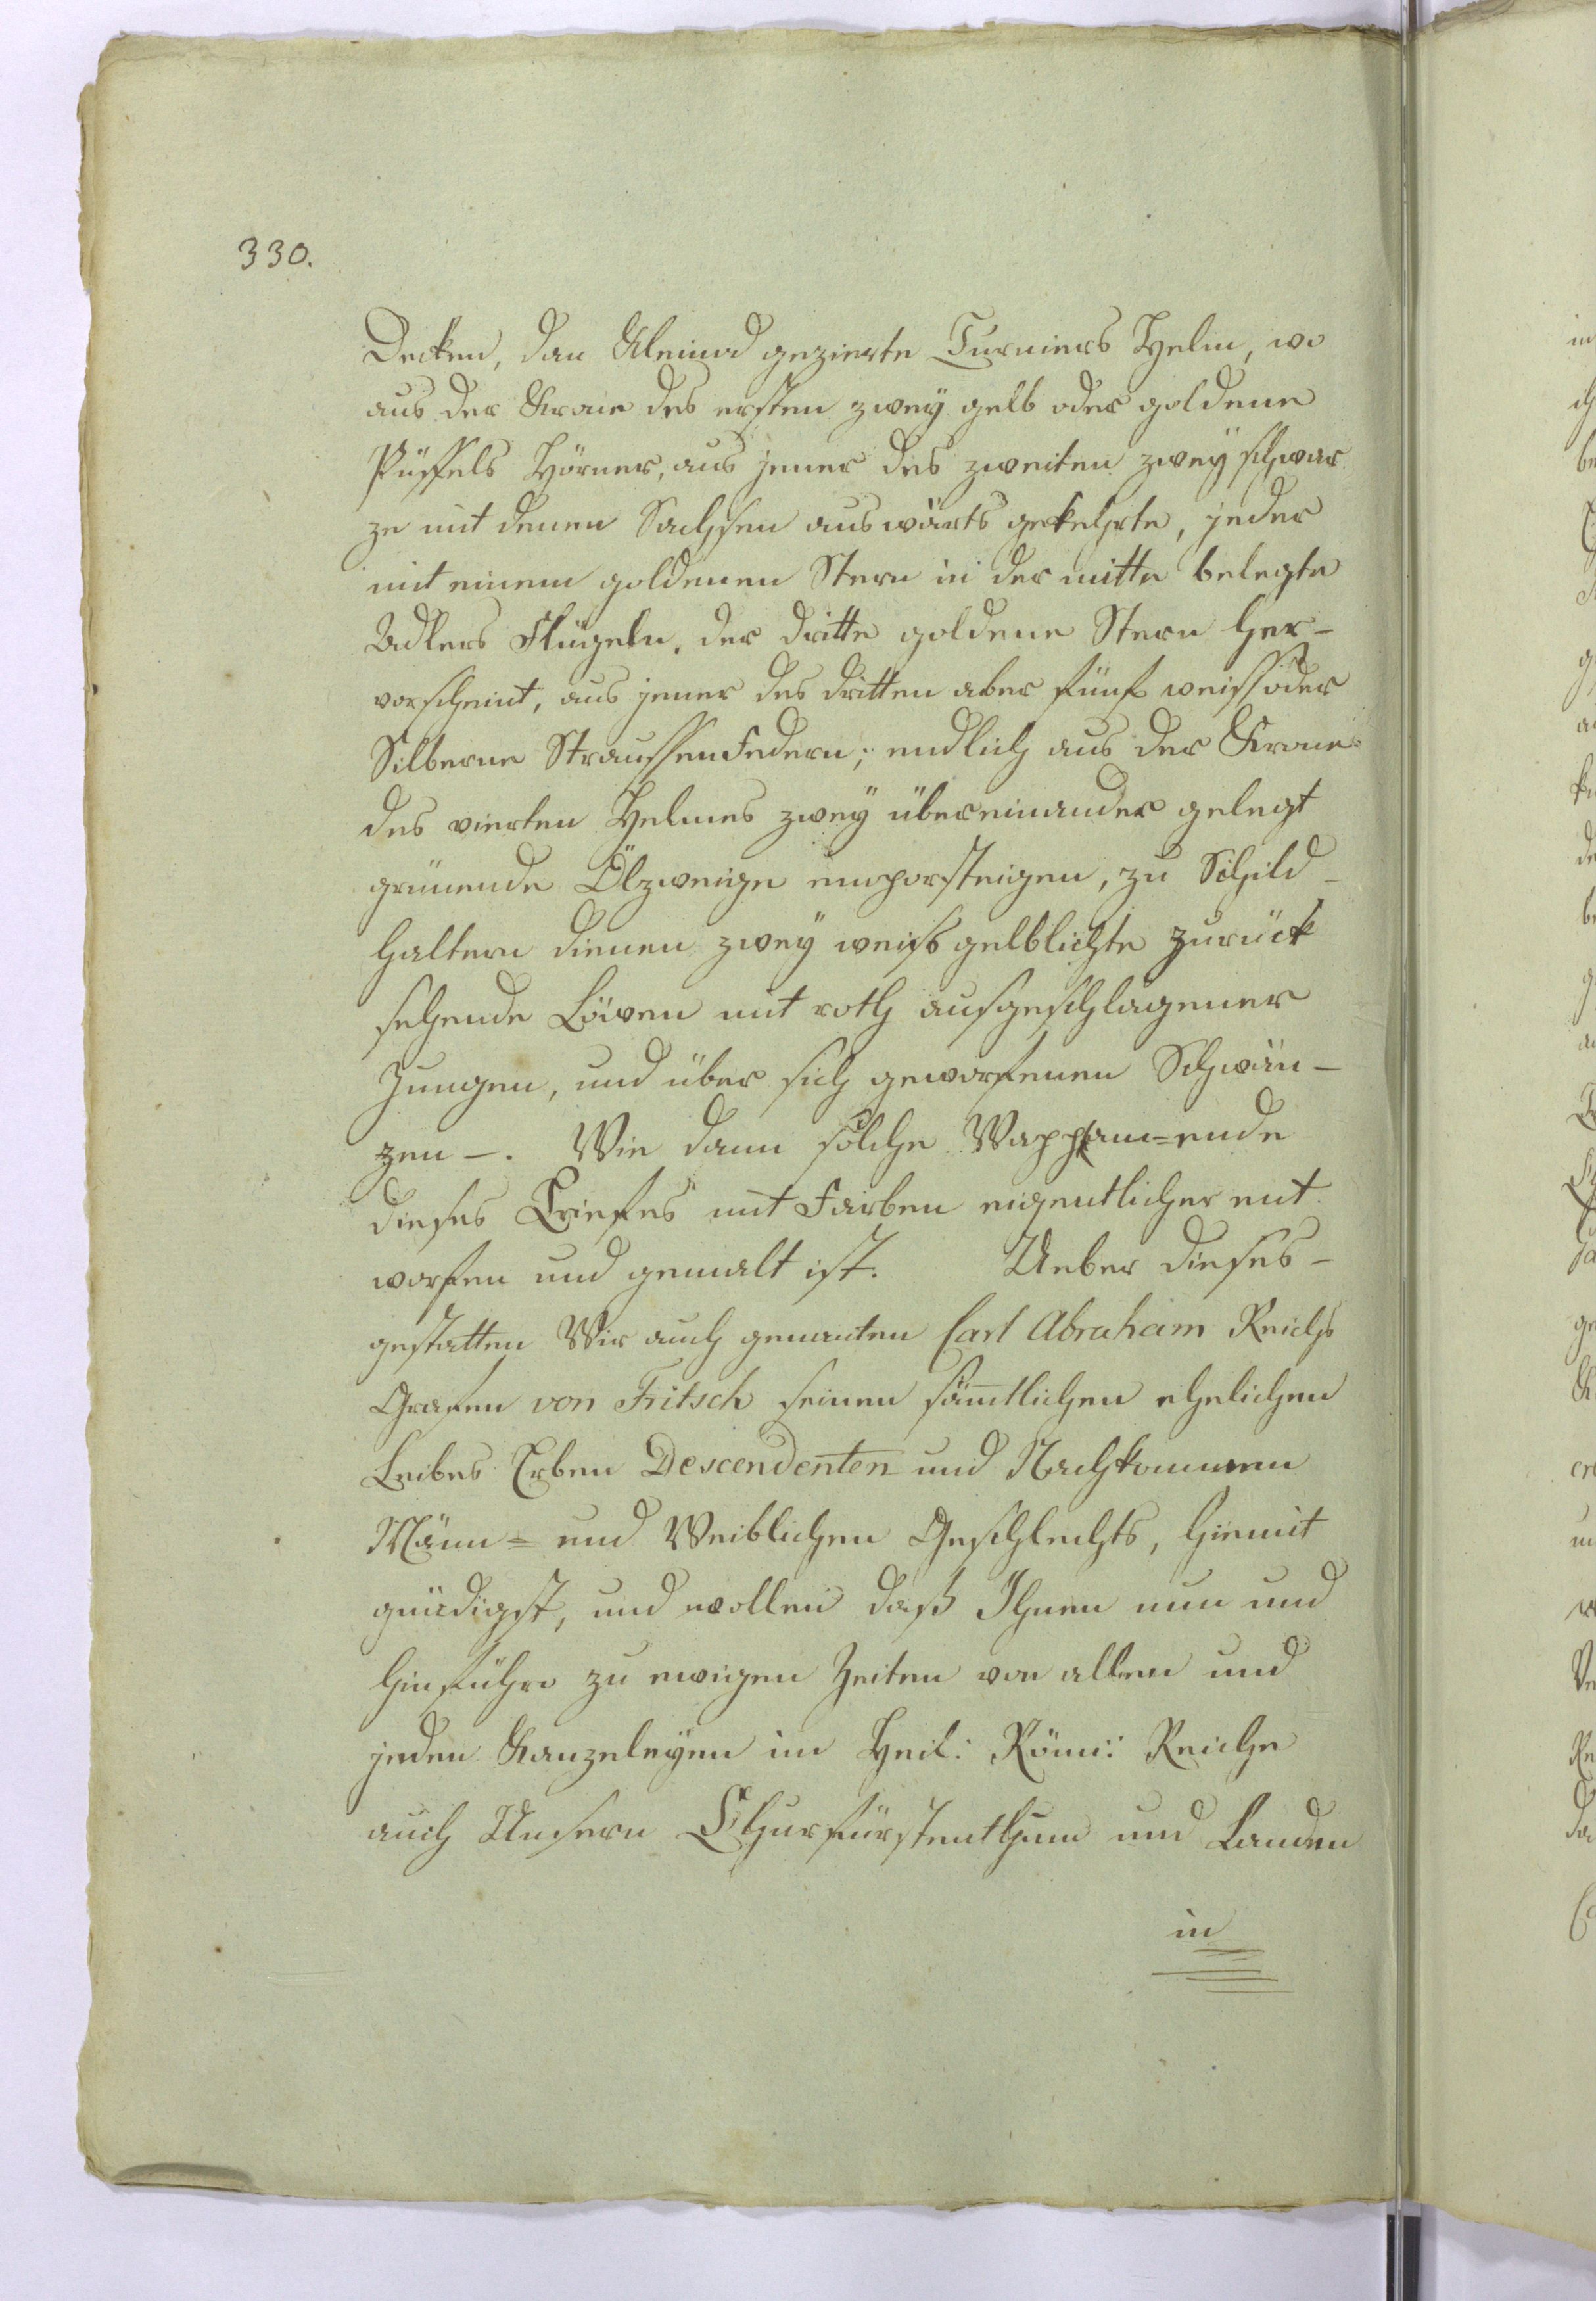 330.
Decken, dan Kleinod gezierte Turniers Helm, wo
aus der Krone des ersten zwey gelb oder goldene
Püffels Hörner, aus jener des zweiten zwey schwar
ze mit denen Sachsen auswärts gekehrte, jeder
mit einem goldenen Stern in der mitte belegte
Adlers Flügeln, der dritte goldene Stern her-
vorscheint, aus jener des dritten aber fünf weiss oder
Silberne Straussenfedern; endlich aus der Krone
des vierten Helmes zwey übereinander gelegt
grünende Ölzweige emporsteigen, zu Schild-
haltern dienen zwey weiss gelblichte zurück
sehende Löwen mit roth ausgeschlagener
Zungen, und über sich geworfenen Schwän-
zen-. Wie dann solche Wapp am=ende
dieses Briefes mit Farben eigentlicher ent
worfen und gemalt ist. Ueber dieses-
gestatten Wir auch genanten Carl Abraham Reichs
Grafen von Fritsch seinen sämtlichen ehelichen
Leibes Erben Descendenten und Nachkommen
Männ= und Weiblichen Geschlechts, hiemit
gnädigst, und wollen daß Ihnen nun und
hinführo zu ewigen Zeiten von allen und
jeden Kanzeleyen im Heil: Röm: Reiche
auch Unsern Churfürstenthum und Landen
in